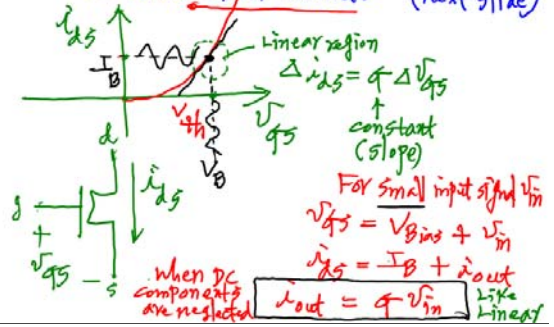 (next slide)
i_ds
I_B
Linear region
Δi_ds = g Δv_gs
V_th
v_gs
V_B
constant
(slope)
d
i_ds
g
+
v_gs
- s
For small input signal v_in
v_gs = V_Bias + v_in
i_ds = I_B + i_out
when DC
components
are neglected
i_out = g v_in
Like
Linear